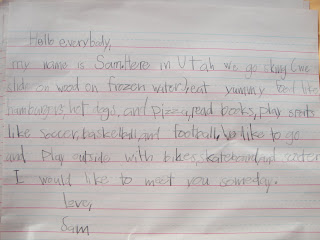 Hello everybody,
my name is Sam. Here in Utah we go skiing (we
slide on wood on frozen water) eat yummy food like
hamburgers, hot dogs, and pizza, read books, play sports
like soccer, basketball, and football. We like to go
and play outside with bikes, skateboard, and scooter
I would like to meet you someday.
Love,
Sam